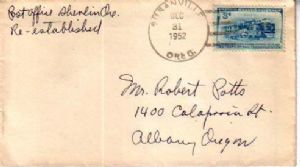 Post Office Shevlin Ore.
Re-established
DEC
31
1952
OREG.
3¢
Mr. Robert Potts
1400 Calapooia St.
Albany Oregon